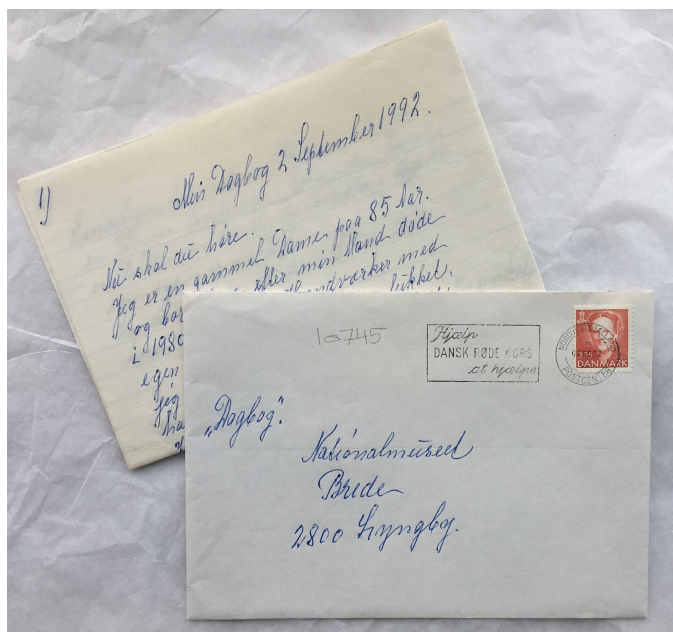 1)
Min Dagbog 2 September 1992.
Nu skal du høre.
Jeg er en gammel Dame paa 85 Aar.
og bor efter min Mand døde
i 1980 Haandværker med
lukket.
egen
Jeg
10745
Hjælp
DANSK RØDE KORS
at hjælpe
POSTCENTER
3.75
DANMARK
„Dagbog".
Nationalmuseet
Brede
2800 Lyngby.